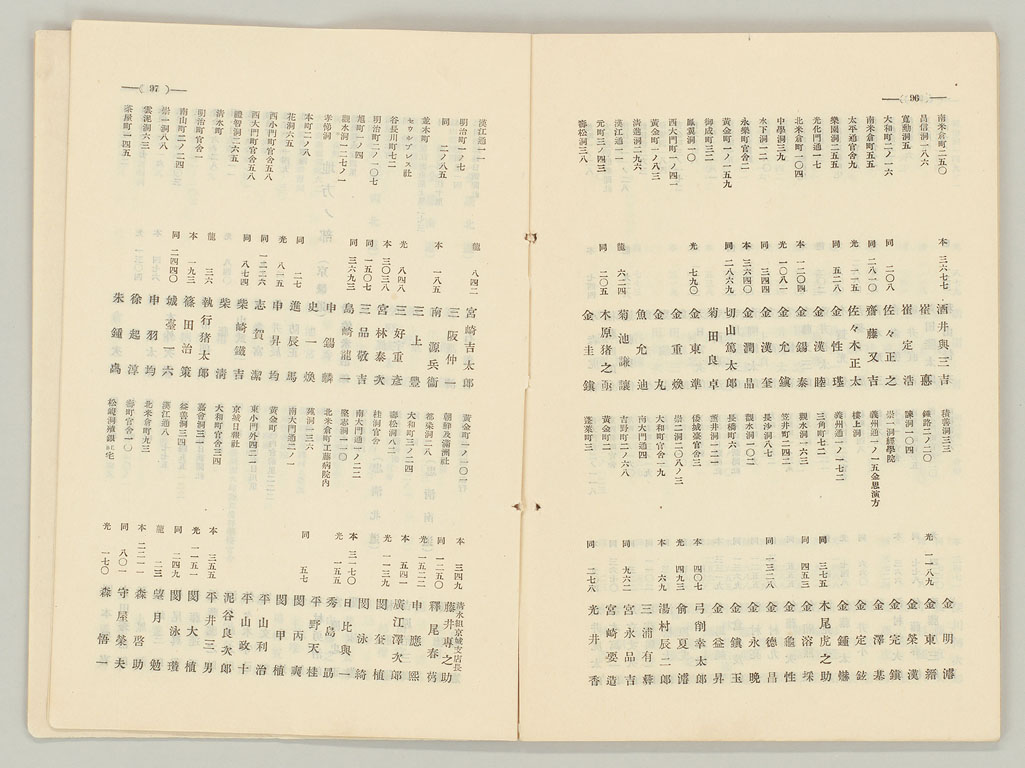 96
南米倉町二五〇 本 三六七七 酒井與三吉
昌信洞一八六 崔 悳
寬勳洞五 崔定浩
大和町二ノ一六 同 二〇八 佐々正之
南米倉町五五 同 二八一〇 齋藤又吉
太平通官舍九 光 二一五 佐々木正太
光化門通一七 同 五二八 金性琫
樂園洞二五五 金漢睦
北米倉町一〇四 本 二〇〇四 金錫泰
中學洞三九 光 一〇八一 金允鎭
水下洞一二 同 三四四 金漢奎
永樂町官舍二 本 三六四〇 金潤晶
黃金町一ノ一五九 同 二八六九 切山篤太郎
御成町三二 菊田良卓
鳳翼洞一〇 光 七九〇 金東準
黃金町一ノ八三 金重煥
西大門町一ノ四一 金丸
淸進洞二九六 魚允迪
漢江通一一 龍 六二四 菊池謙讓
元町三ノ四三 同 二〇五 木原猪之
壽松洞三八 金圭鎭
積善洞三三 金明濬
鍾路二ノ二〇 光 一一八九 金東縉
諫洞一〇四 金榮漢
崇一洞經學院 金完鎭
義州通一ノ一五金思演方 金澤基
樓上洞 金定鉉
義州通一ノ一七二 金鍾
三角町七二 同 三七五 木尾虎之助
觀水洞一六三 同 四五三 金溶琛
笠井町二四二 金龜性
長沙洞八七 同 一三二八 金德昌
觀水洞一〇二 金永晚
長橋町六 金鎭玉
薰井洞一二一 金益昇
倭城臺官舍三 本 四〇七 弓削幸太郎
崇二洞二〇八ノ三 光 四九三 兪定濬
大和町官舍一九 本 六九 湯村辰二郎
南大門通四 三浦有彝
吉野町二ノ六八 同 九六二 宮永品吉
黃金町二 宮崎要造
蓬萊町三 同 二七八 光井香
97
漢江通一一 龍 八四二 宮崎吉太郎
明治町一ノ七 三阪仲一
同 二ノ八五 本 一八五 南源兵衞
並木町 三上豊
セウルプレス社 光 八四八 三好重彥
谷長川町七二 本 三〇三八 宮林泰次
明治町二ノ一〇七 同 一五〇七 三品敬吉
旭町一ノ四 同 三六九三 島崎龍一
觀水洞一二七ノ一 申錫麟
孝悌洞 史一煥
本町二ノ八 同 二七 進辰馬
花洞六五 光 八二五 申昇均
西小門町官舍五八 同 一二二六 志賀潔
西大門町官舍五八 同 八四七 柴崎鐵吉
禮智洞二六五 柴淸
淸水町 龍 三六 執行猪太郎
明治町官舍一 本 一九三 篠田治策
南山町二ノ二四 同 二四四〇 城臺一六
崇一洞八八 申羽均
雲泥洞六三 徐起淳
茶屋町一四五 朱鍾
黃金町一ノ一〇一 本 三四九 淸水組京城支店長 藤井專之助
朝鮮及滿洲社 同 一二五〇 釋尾春芿
都染洞二八 光 一五二二 申應熙
大和町三ノ二四 本 五四一 廣江澤次郎
壽松洞八二 光 一一三九 閔奎植
桂洞官舍 閔泳綺
南大門通一ノ二二 本 三一七〇 日比與一
堅志洞一一〇 光 一五五 秀島
北米倉町工藤病院內 平野天桂
苑洞一三六 同 五七 閔丙奭
南大門通二ノ一 閔甲植
黃金町 平山又利治
東小門外四二一 平山政十
京城日報社 泥谷良次郎
大和町官舍三四 本 三五五 平井三男
嘉會洞三一 光 一一五一 閔大植
益善洞三四 同 二四九 閔泳瓚
漢江通八 龍 二三 望月勉
北米倉町九三 本 二二一一 森啓助
壽町官舍一〇 同 八〇一 守屋榮夫
松峴洞殖銀社宅 光 一七〇 森悟一